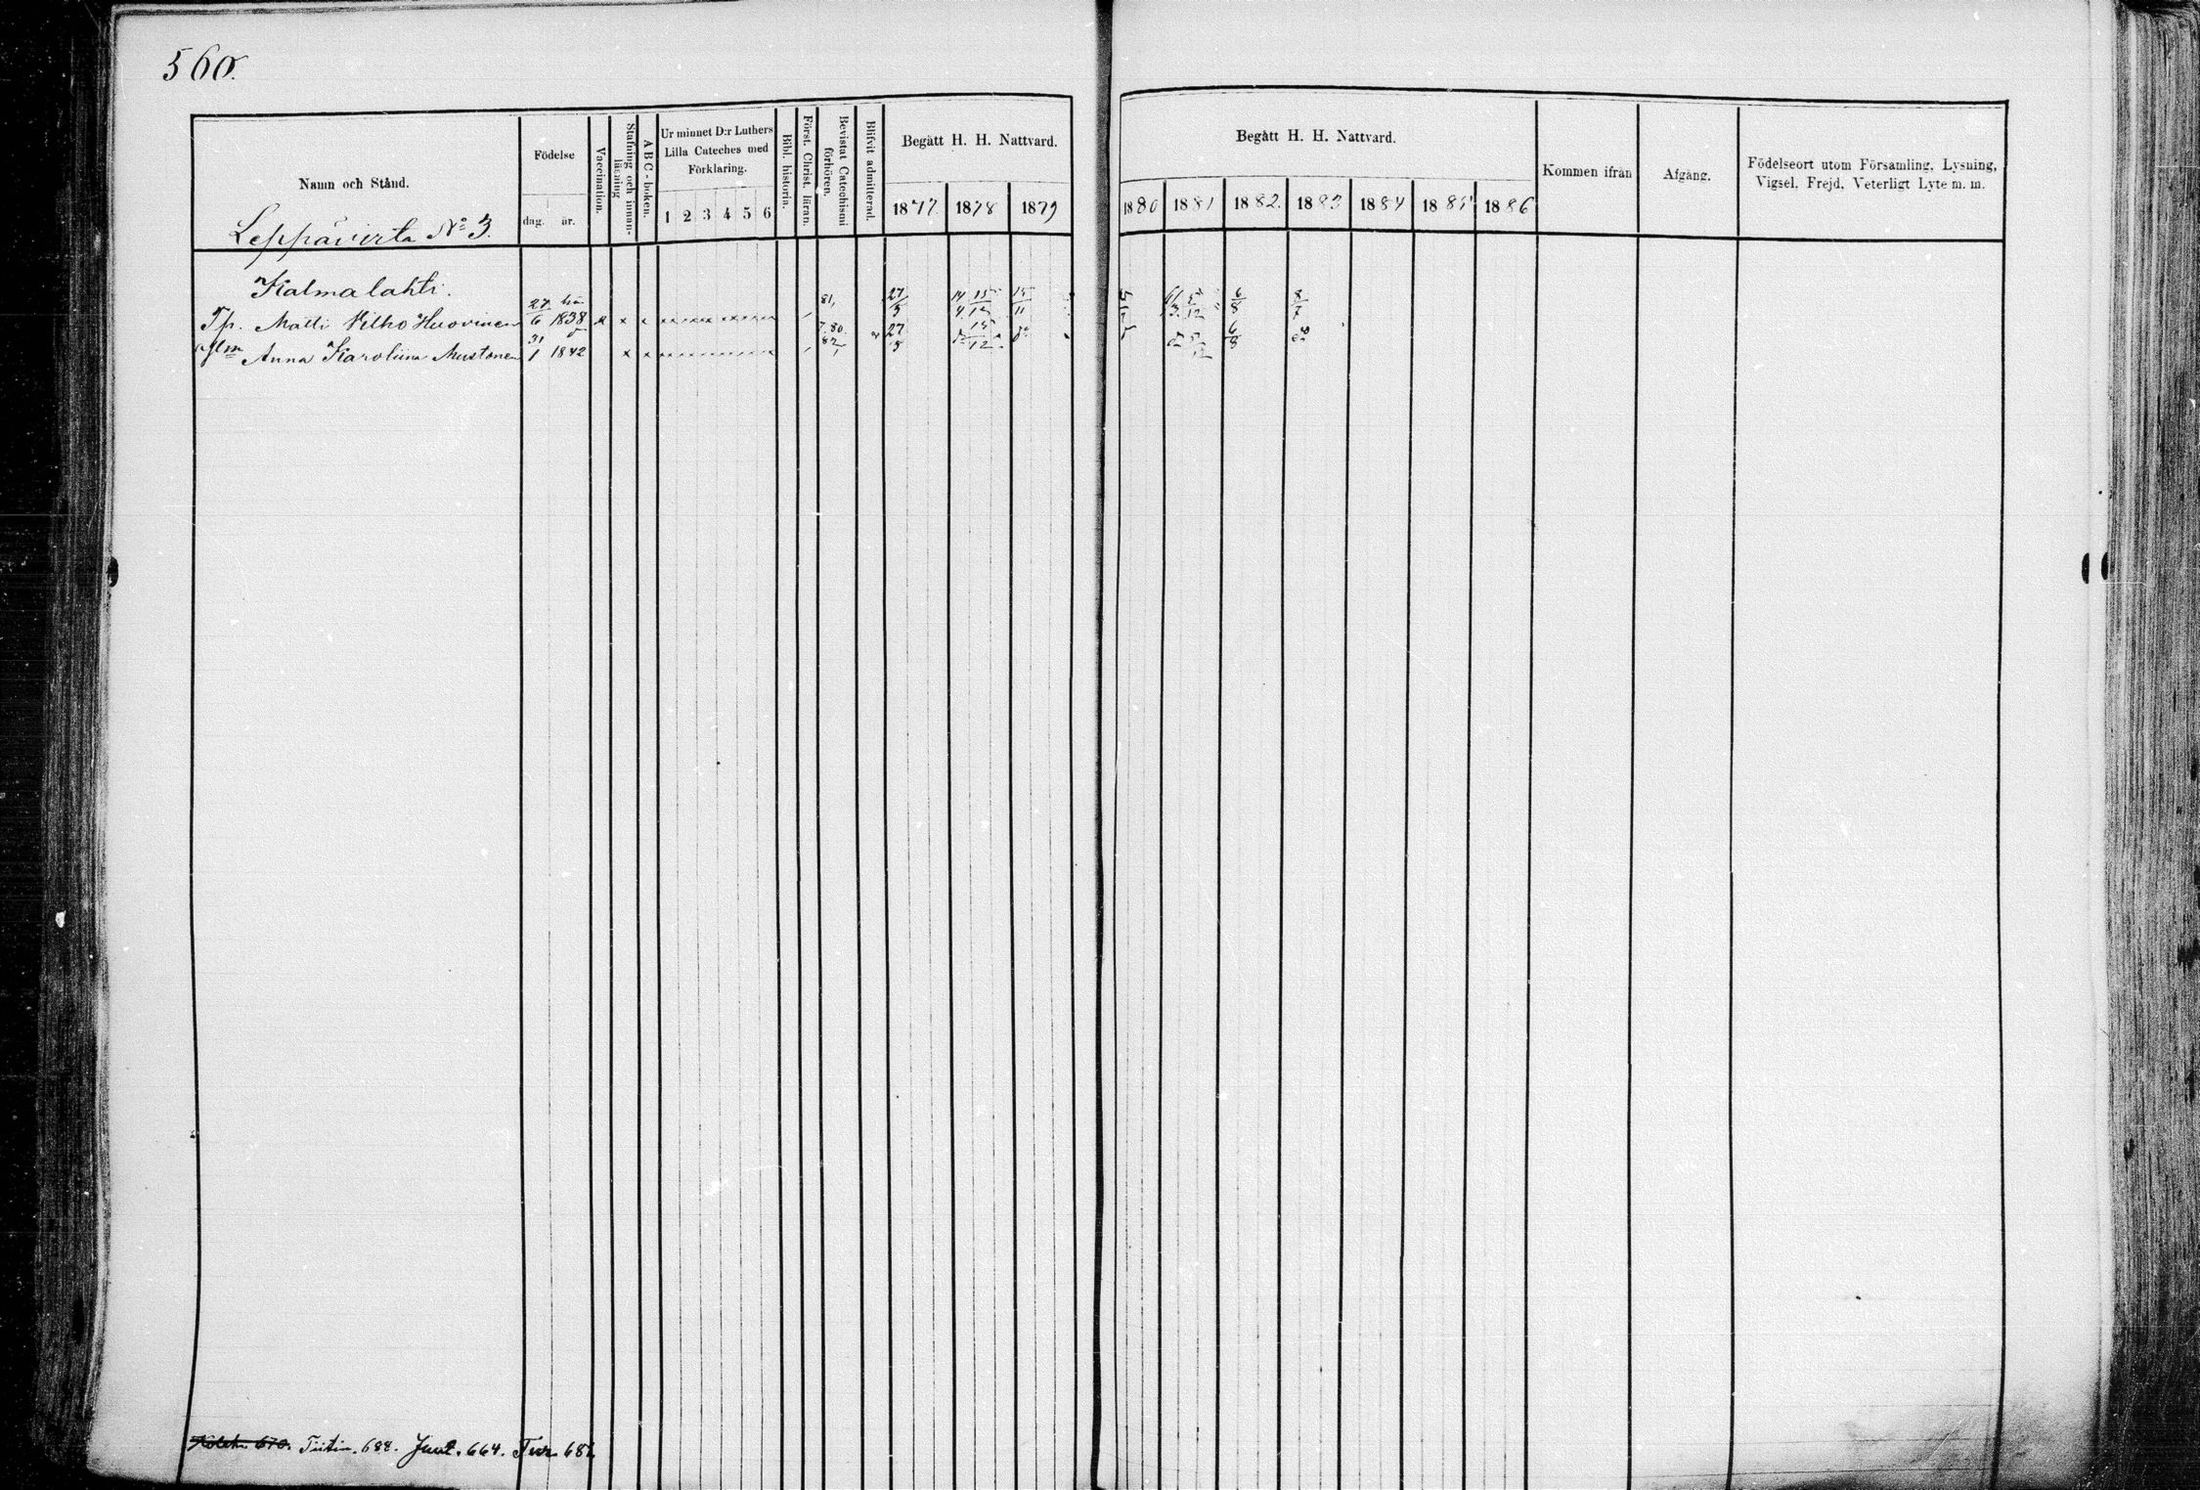 560.
Namn och Stånd.
Födelse
dag. år.
Vaccination.
Stafning och innan-
läsning
A B C - boken.
Ur minnet D:r Luthers
Lilla Cateches med
Förklaring.
1 2 3 4 5 6
Bibl. historia.
Först. Christ. läran.
Bevistat Catechismi
förhören.
Blifvit admitterad.
Begått H. H. Nattvard.
1877. 1878 1879
Begått H. H. Nattvard.
1880 1881 1882. 1883 1884 1885 1886
Kommen ifrån
Afgång.
Födelseort utom Församling, Lysning,
Vigsel, Frejd, Veterligt Lyte m. m.
Leppävirta No 3.
Kalmalahti.
Tp. Matti Vilho Huovinen 27/6 1838 x x x 81, 27/5 14/4 15/12 15/11 6/8 8/7
Anna Karoliina Mustonen 31/1 1842 x x 7.80. 82, 27/5 15/12 do 6/8 do
Tiitin. 688. Juut. 664. Tur. 681